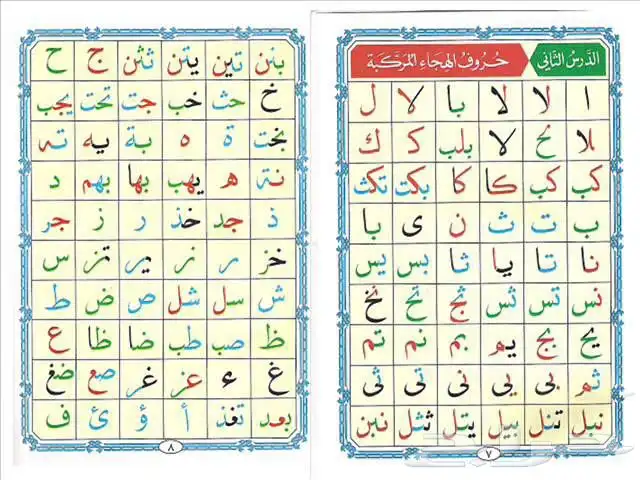 الدَّرْسُ الثَّانِي حُرُوفُ الهِجَاءِ المُرَكَّبَة
ا لا لا با لا ل
لا بلب ك ك
كب كب كا كا بكت تكث
ب ت ث ن ى با
نا تا يا ثا بس يس
نس تس ثس ثج تح نخ
يح بج يم بم نم تم
ثم بى يى نى تى ثى
نبل تنل بيل يتل ثثل نبن
٧
بنن تين يتن ثثن ج ح
خ حث خب جت تحت يجب
بخت ة ه بة يه ته
نة ه يهب بها بهم د
ذ جد خذ ر ز جر
خز ر ز ير تز س
ش سل شل ص ض ط
ظ صب طب ضا ظا ع
غ ء عز غر صع ضغ
بعد تغذ أ ؤ ئ ف
٨